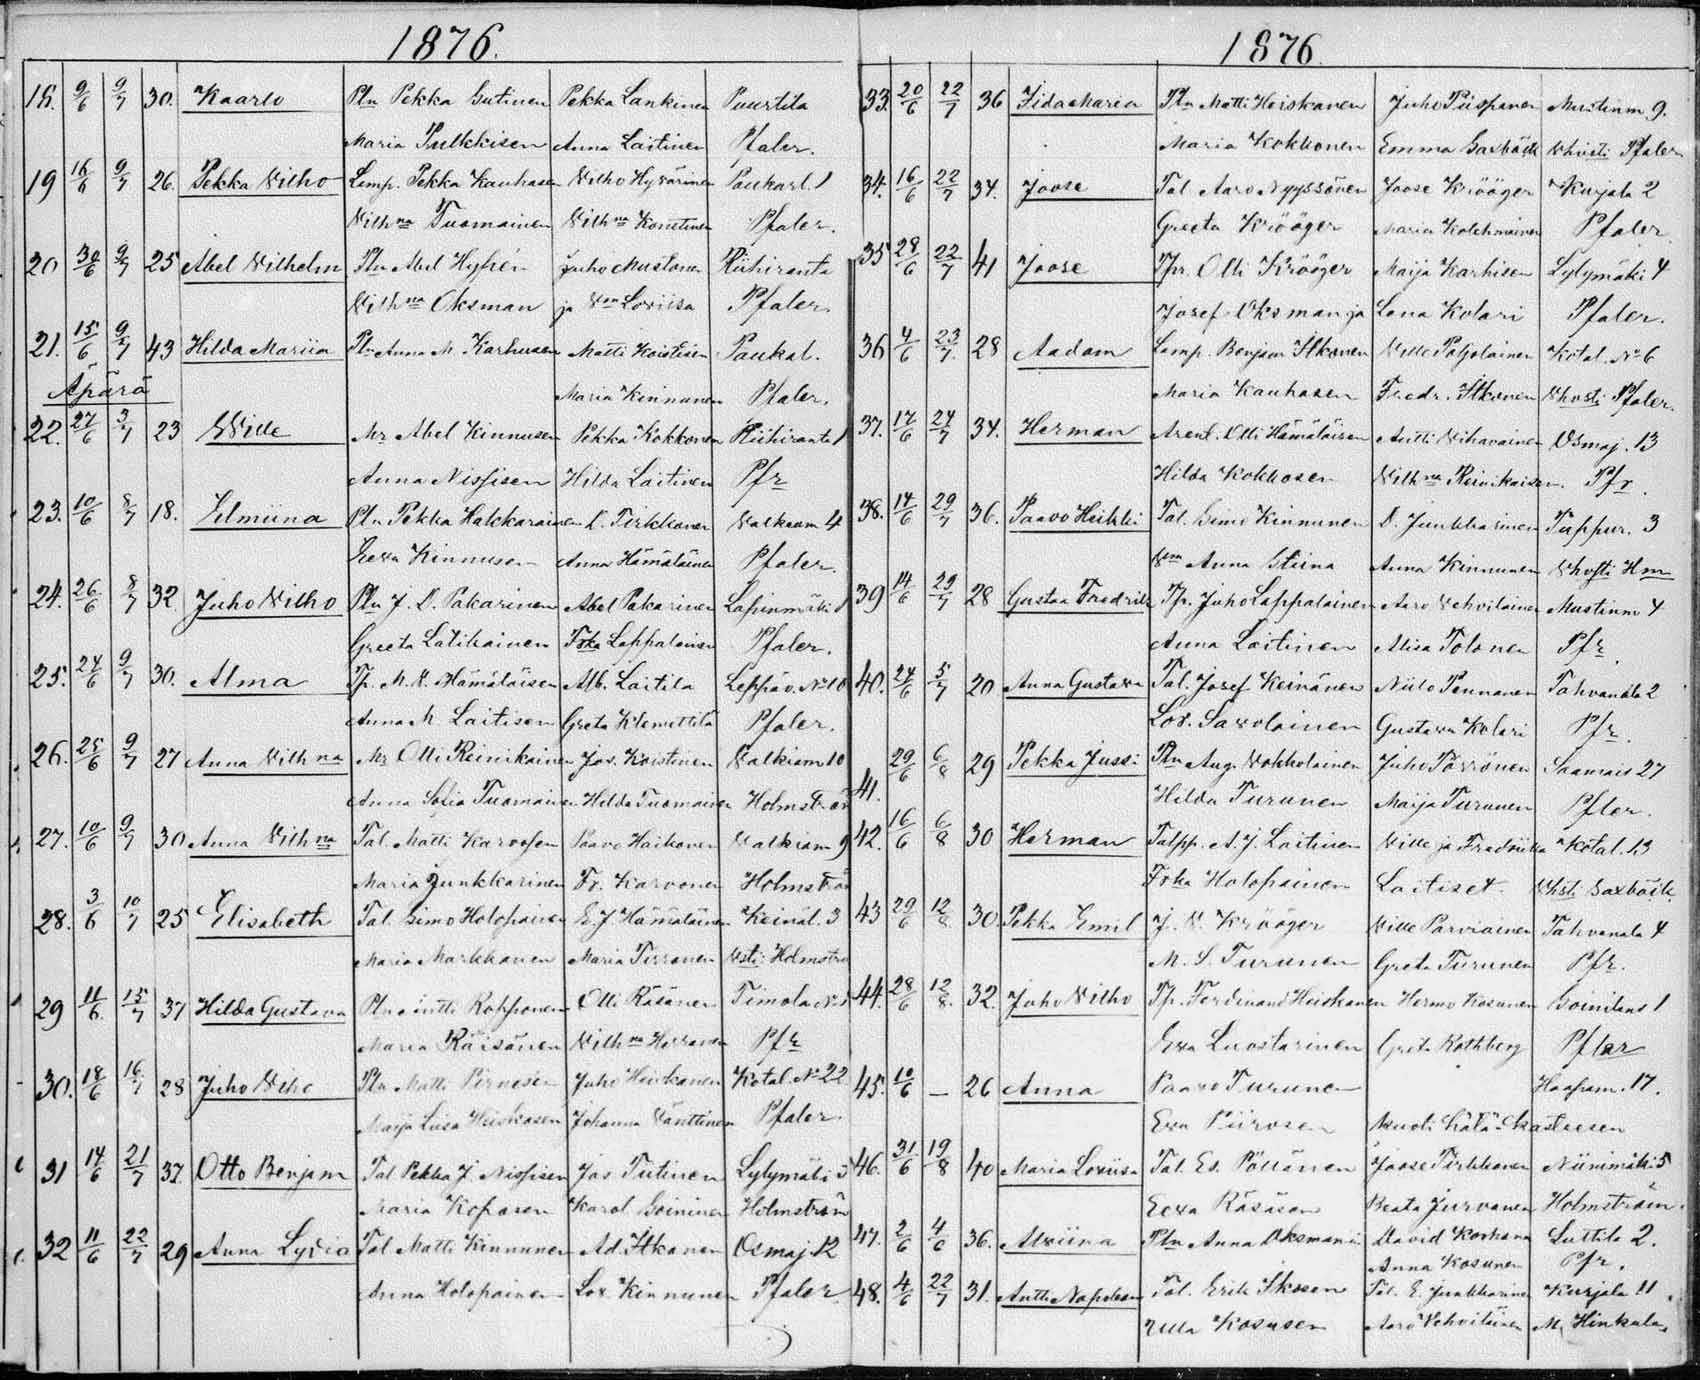 1876.
18. 9/6 9/7 30. Kaarlo Pln Pekka Gutinen Pekka Lankinen Puurtila
Maria Pulkkisen Anna Laitinen Pfaler.
19 16/6 9/7 26. Pekka Wilho Lamp. Pekka Kauhasen Wilho Hyvärinen Paukarl. 1
Wilhna Tuomainen Wilhna Konttinen Pfaler.
20 30/6 9/7 25 Abel Wilhelm Pln Abel Hyfrén Juho Mustonen Riihiranta
Wilhna Oksman ja Vm Loviisa Pfaler.
21. 15/6 9/7 43 Hilda Mariia Pln Anna M Karhusen Matti Koistisen Paukal.
Äpärä Maria Kinnunen Pfaler.
22. 27/6 3/7 23 Wille Mr Abel Kinnusen Pekka Kokkonen Riihiranta 1
Anna Nissisen Hilda Laitinen Pfr
23. 10/6 8/7 18. Elmiina Pln Pekka Hakkaraisen D. Tirkkonen Walkeam 4
Eewa Kinnusen Anna Hämäläinen Pfaler.
24. 26/6 8/7 32 Juho Wilho Pln J. D. Pakarinen Abel Pakarinen Lapinmäki 1
Greeta Latikainen Frka Lappalainen Pfaler.
25. 24/6 9/7 30. Alma Tp. M. K. Hämäläisen Alb. Laitila Leppäv. No 10
Anna M Laitisen Greta Klemettilä Pfaler.
26. 25/6 9/7 27 Anna Wilhna Mr Olli Reinikainen Jos. Koistinen Walkiam 10
Anna Sofia Tuomainen Hilda Tuomainen Holmström
27. 10/6 9/7 30 Anna Wilhna Tal. Matti Karvosen Paavo Haikonen Walkiam 9
Maria Junkkarinen Fr. Karvonen Holmström
28. 3/6 10/7 25 Elisabeth Tal. Simo Holopainen E. J. Hämäläinen Keinäl. 3
Maria Markkanen Maria Tirronen Wsti Holmström
29 11/6 15/7 37 Hilda Gustava Pln Antti Rohponen Olli Räsänen Timola No 1
Maria Räisänen Wilhna Herranen Pfr
30. 18/6 16/7 28 Juho Wilho Pln Matti Pirnesen Juho Heiskanen Kotal. No 22
Maija Liisa Heiskasen Johanna Vänttinen Pfaler
31 14/6 21/7 37 Otto Benjam Tal Pekka J. Nissisen Jos Tiitinen Lylymäki 5
Maria Koposen Karol. Soininen Holmström
32 11/6 22/7 29 Anna Lydia Tal Matti Kinnunen Ad. Itkonen Osmaj 12
Anna Holopainen Lov. Kinnunen Pfaler
1876
33. 20/6 22/7 36 Iida Maria Pln Matti Heiskanen Juho Piispanen Mustinm 9.
Maria Kokkonen Emma Saxbäck Whisti Pfaler
34. 16/6 22/7 34. Joose Tal Aaro Nyyssönen Joose Krööger Kurjala 2
Greeta Krööger Maria Kolehmainen Pfaler
35 28/6 22/7 41 Joose Tpr. Olli Krööger Maija Karhisen Lylymäki 4
Josef Oksman ja Lena Kolari Pfaler.
36 4/6 23/7 28 Aadam Lamp. Benjam Itkonen Wille Pohjolainen Kotal. No 6
Maria Kauhasen Fredr. Itkonen Whosti Pfaler.
37. 17/6 24/7 34. Herman Arent. Olli Hämäläisen Antti Wihavainen Osmaj. 13
Hilda Kokkosen Wilhna Reinikaisen. Pfr.
38. 14/6 29/7 36. Paavo Heikki Tal. Simo Kinnunen D. Junkkarinen Tuppur. 3
Vm Anna Stiina Anna Kinnunen Whosti Hm
39 14/6 29/7 28 Gustaa Fredrik Tp. Juho Lappalainen Aaro Wehviläinen Mustinm 4
Anna Laitinen Miisa Tolonen Pfr.
40. 24/6 5/7 20 Anna Gustava Tal. Josef Keinänen Niilo Pennanen Tahvanala 2
Lov. Savolainen Gustava Kolari Pfr.
41. 29/6 6/8 29 Pekka Jussi Pln Aug. Wokkolainen Juho Törrönen Saamais 27
Hilda Turunen Maija Turunen Pfler.
42. 16/6 6/8 30 Herman Talpp. A. J. Laitinen Wille ja Fredriika Kotal. 13
Frka Holopainen Laitiset. Whsti Saxbäck.
43 29/6 12/8 30. Pekka Emil J. W. Krööger Wille Parviainen Tahvanala 4
M. S. Turunen Greta Turunen Pfr.
44. 28/6 12/8. 32. Juho Wilho Tp. Ferdinand Heiskanen Hermo Kosunen Soinilans 1
Ewa Luostarinen Greta Rothberg Pfler
45. 10/6 — 26 Anna Paavo Turunen Haapam. 17.
Ewa Piirosen Muoti hätä-kasteesen
46. 31/6 19/8 40 Maria Loviisa Tal. Es. Pöllänen Joose Tirkkonen Niinimäki 5
Eewa Räsäsen Beata Jurvanen Holmström.
47. 2/6 4/6 36. Alviina Pln Anna Oksmanin David Korhonen Luttila 2.
Anna Kosunen Pfr.
48. 4/6 22/7 31. Antti Napoleon Tal. Erik Iksosen Tal. E. Junkkarinen Kurjala 11.
Ulla Kosusen Aaro Wehviläinen M. Hinkula.